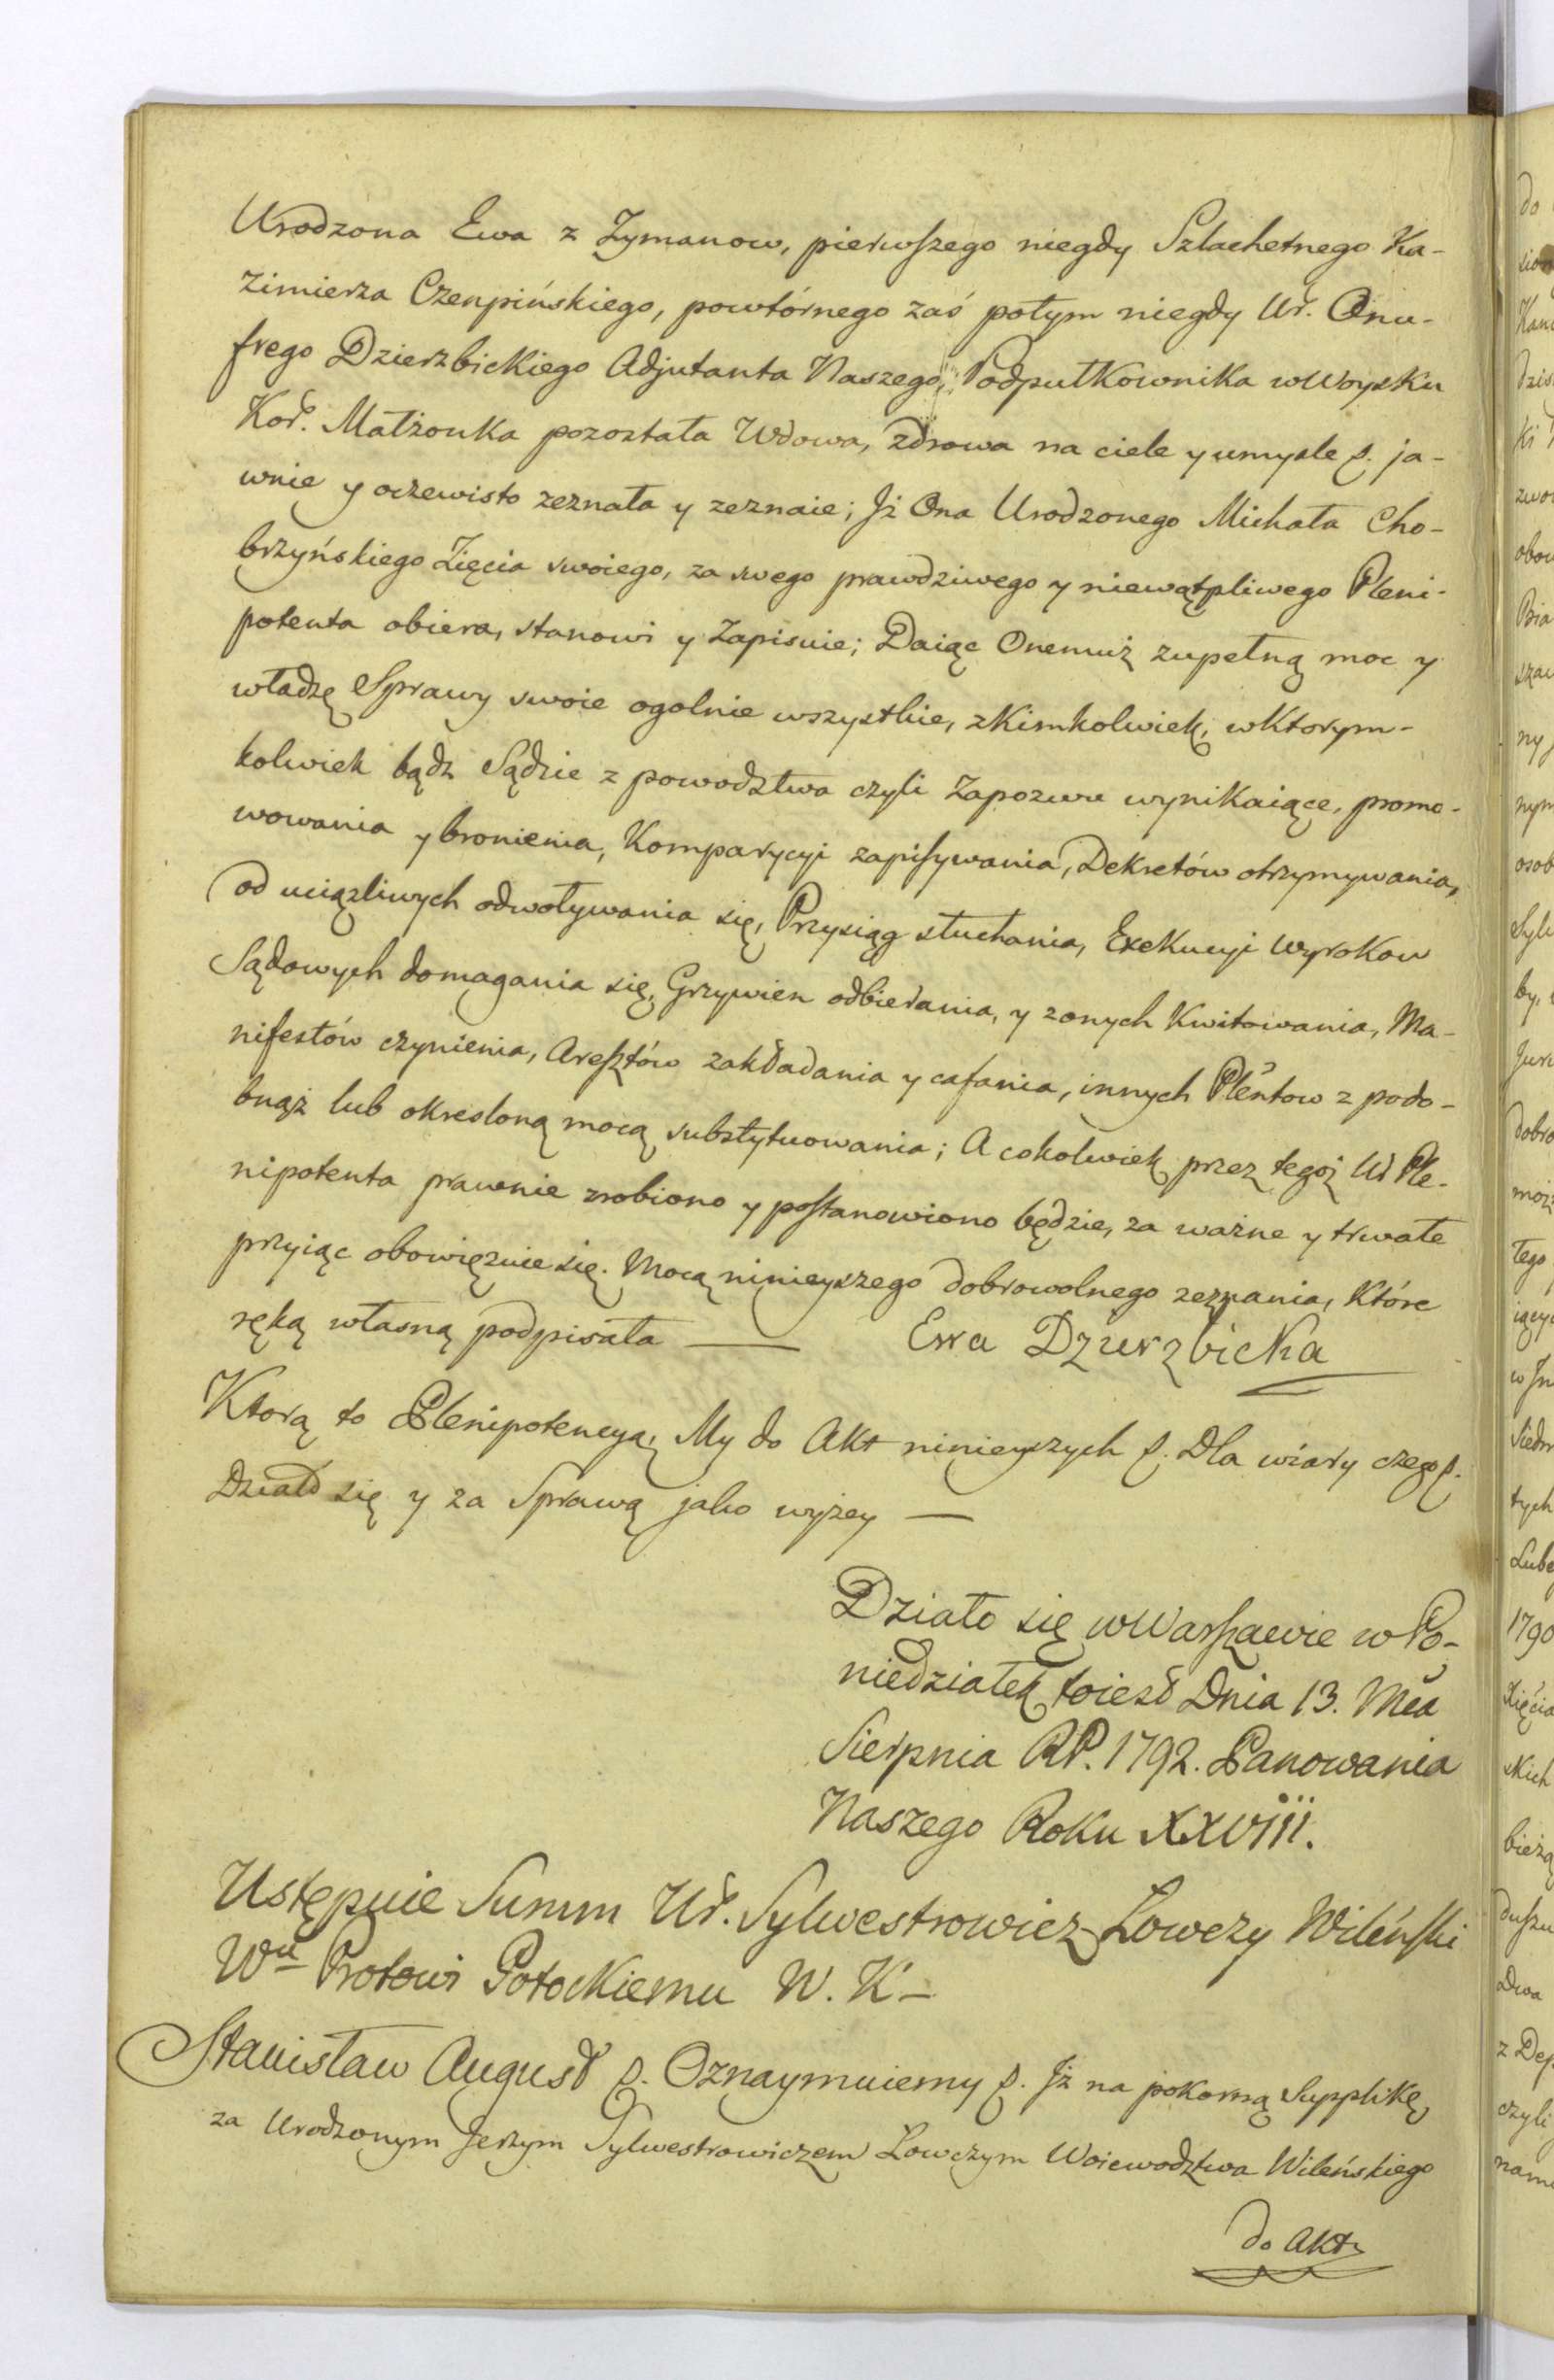 Urodzona Ewa z Zymanow, pierwszego niegdy Szlachetnego Ka-
zimierza Czenpińskiego, powtórnego zaś potym niegdy Ur. Onu-
frego Dzierzbickiego Adjutanta Naszego, Podpułkownika w Woysku
Kor. Małżonka pozostała Wdowa, zdrowa na ciele y umysle p. ja-
wnie y oczewisto zeznała y zeznaie; Jż Ona Urodzonego Michała Cho-
brzyńskiego Zięcia swoiego, za swego prawdziwego y niewątpliwego Pleni-
potenta obiera, stanowi y Zapisuie; Daiąc Onemuż zupełną moc y
władzę Sprawy swoie ogolnie wszystkie, z Kimkolwiek, w Ktorym-
kolwiek bądz Sądzie z powodztwa czyli Zapozwu wynikaiące, promo-
wowania y bronienia, Komparycyi zapisywania, Dekretów otrzymywania,
od uciązliwych odwoływania się, Przysiąg słuchania, Exekucyi Wyrokow
Sądowych domagania się, Grzywien odbierania, y z onych Kwitowania, Ma-
nifestów czynienia, Aresztów zakładania y cafania, innych Plentow z podo-
bnąż lub okresloną mocą substytuowania; A cokolwiek przez tegoż Ur Ple-
nipotenta prawnie zrobiono y postanowiono będzie, za ważne y trwałe
przyiąc obowięzuie się. Mocą ninieyszego dobrowolnego zeznania, Które
ręką własną podpisała — Ewa Dzierzbicka
Ktorą to Plenipotencyą, My do Akt ninieyszych p. Dla wiary czego p.
Działo się y za Sprawą jako wyżey —
Działo się w Warszawie w Po-
niedziałek toiest Dnia 13. Mca
Sierpnia RP. 1792. Panowania
Naszego Roku XXVIII.
Ustępuie Summ Ur. Sylwestrowicz Łowczy Wileński
Wu Protowi Potockiemu W. K —
Stanisław August p. Oznaymuiemy p. Jż na pokorną Supplikę,
za Urodzonym Jerzym Sylwestrowiczem Łowczym Woiewodztwa Wileńskiego
do Akt